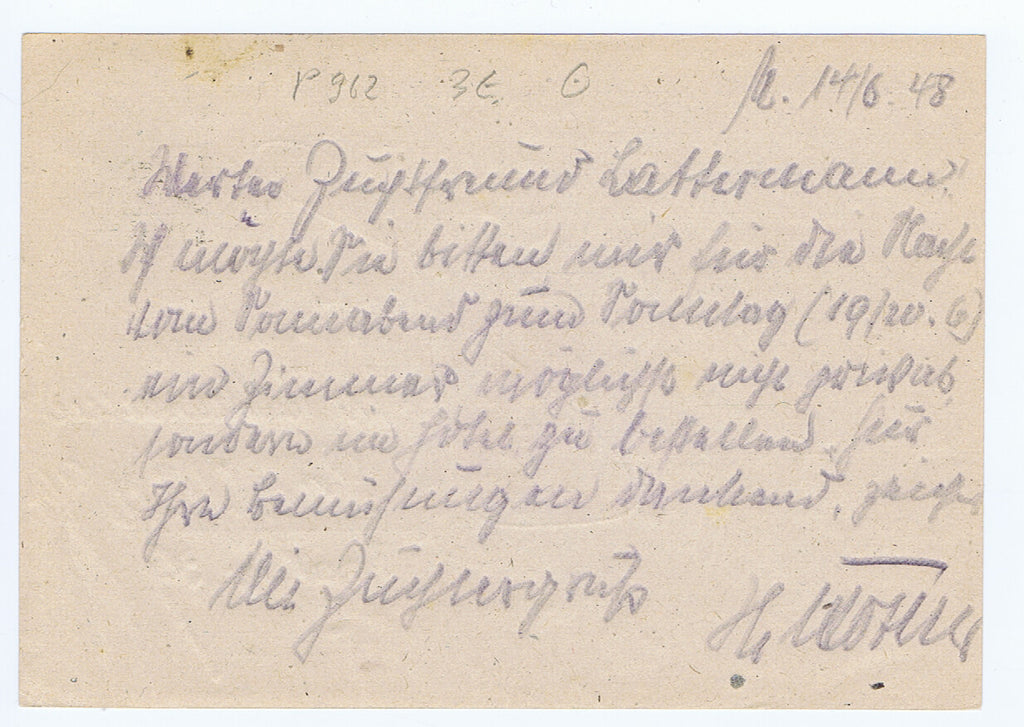 P 962 3€
14/6. 48
Werter Zuchtfreund Lattermann!
Ich möchte Sie bitten, mir für die Nacht
vom Sonnabend zum Sonntag (19/20. 6)
ein Zimmer möglichst nicht privat,
sondern im Hotel zu bestellen. Für
Ihre Bemühungen dankend, zeichne
Mit Züchtergruß
H.